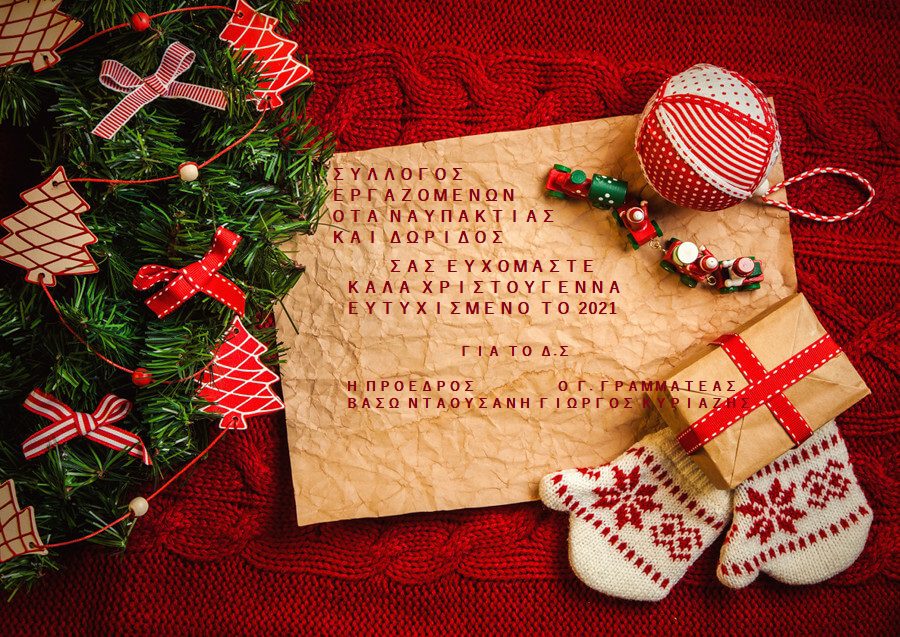 ΣΥΛΛΟΓΟΣ
ΕΡΓΑΖΟΜΕΝΩΝ
ΟΤΑ ΝΑΥΠΑΚΤΙΑΣ
ΚΑΙ ΔΩΡΙΔΟΣ
ΣΑΣ ΕΥΧΟΜΑΣΤΕ
ΚΑΛΑ ΧΡΙΣΤΟΥΓΕΝΝΑ
ΕΥΤΥΧΙΣΜΕΝΟ ΤΟ 2021
ΓΙΑ ΤΟ Δ.Σ
Η ΠΡΟΕΔΡΟΣ Ο Γ. ΓΡΑΜΜΑΤΕΑΣ
ΒΑΣΩ ΝΤΑΟΥΣΑΝΗ ΓΙΩΡΓΟΣ ΚΥΡΙΑΖΗΣ